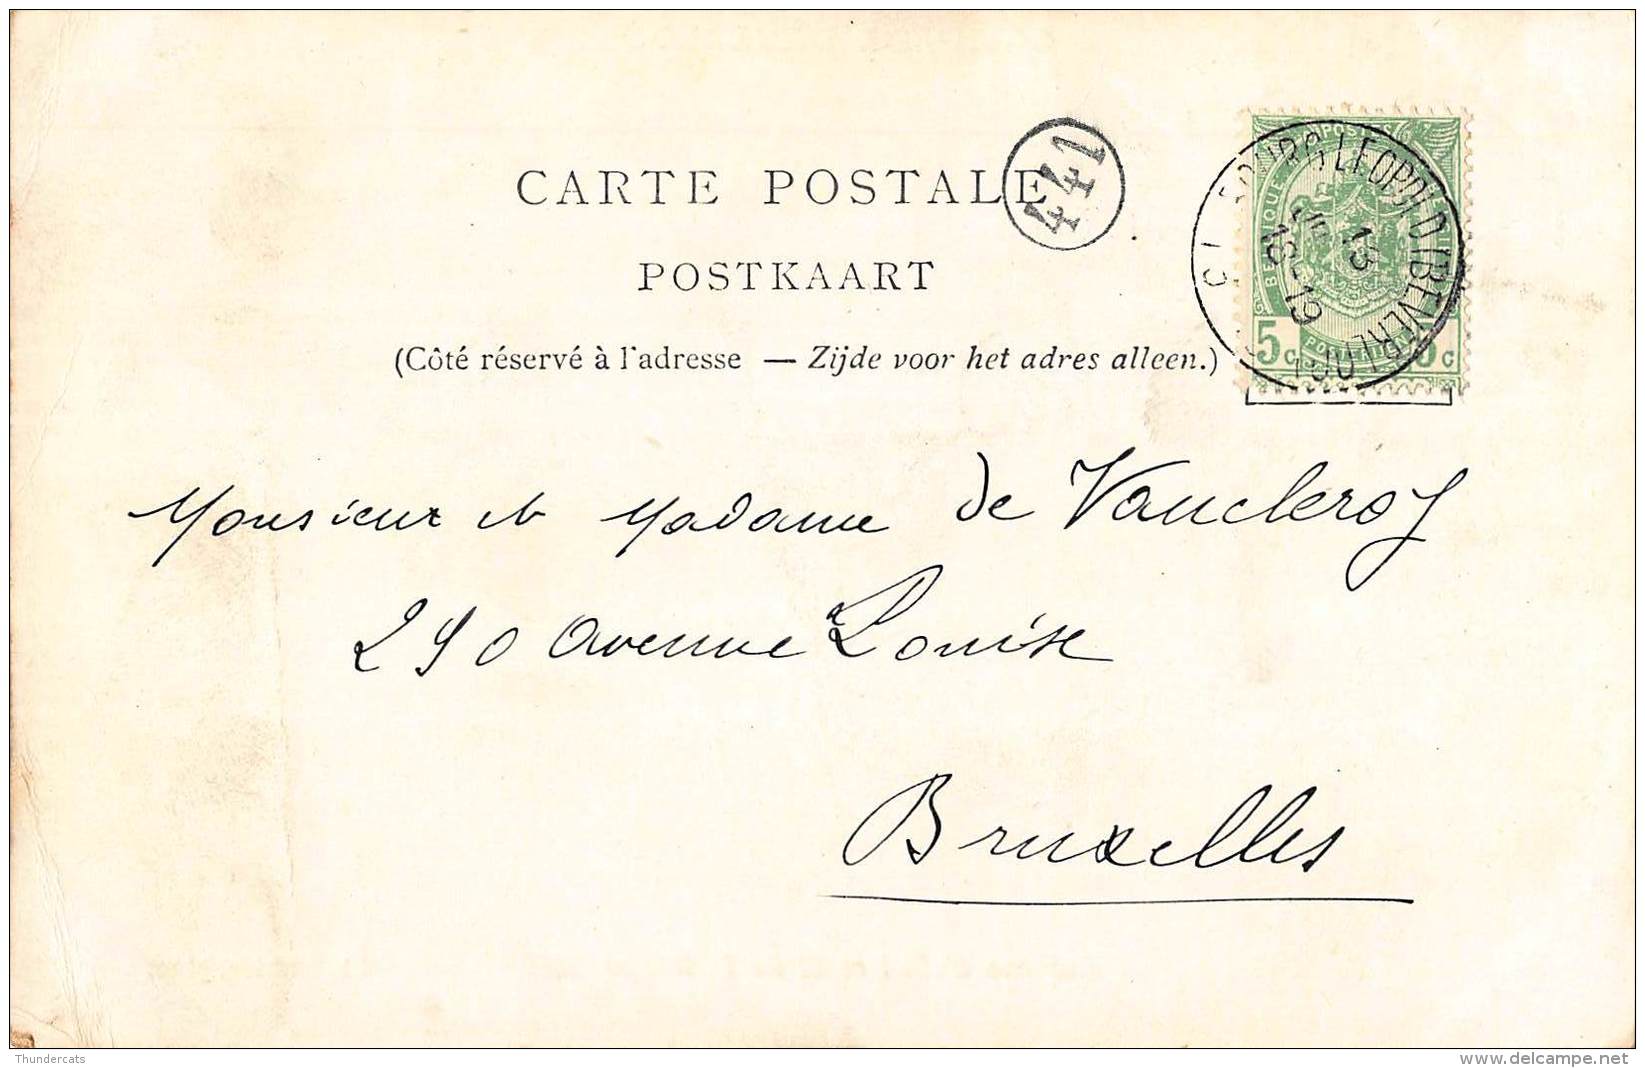 CARTE POSTALE
441
POSTKAART
(Côté réservé à l'adresse — Zijde voor het adres alleen.)
POSTES
BELGIQUE
5c 5c
POSTERIJEN
BOURG-LEOPOLD (BEVERLOO)
13
18-19
Monsieur et Madame de Vaucleroy
290 Avenue Louise
Bruxelles
Thundercats
www.delcampe.net